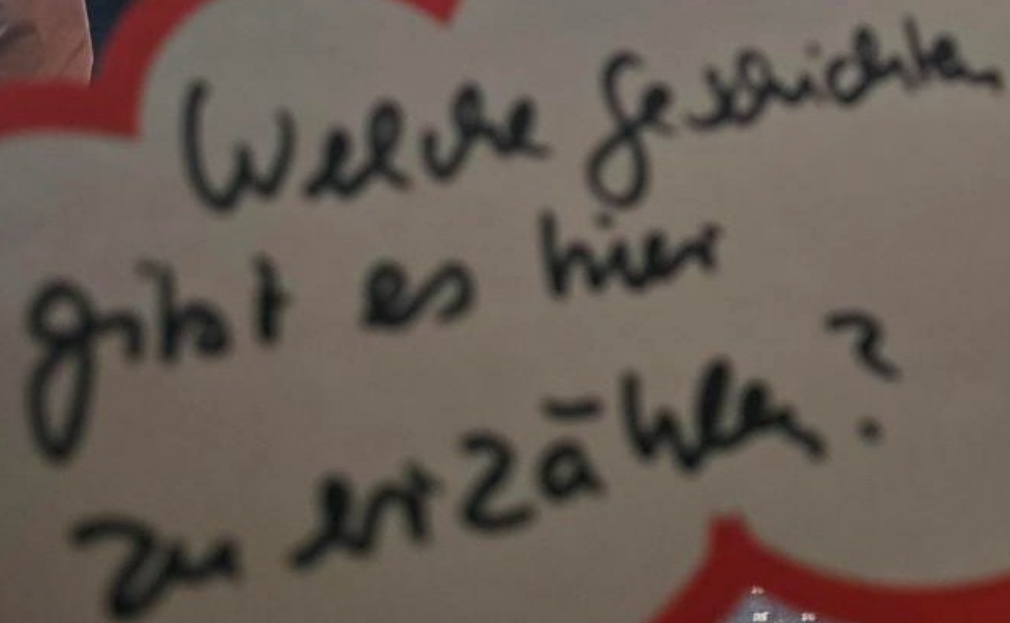 Welche Geschichten
gibt es hier
zu erzählen?